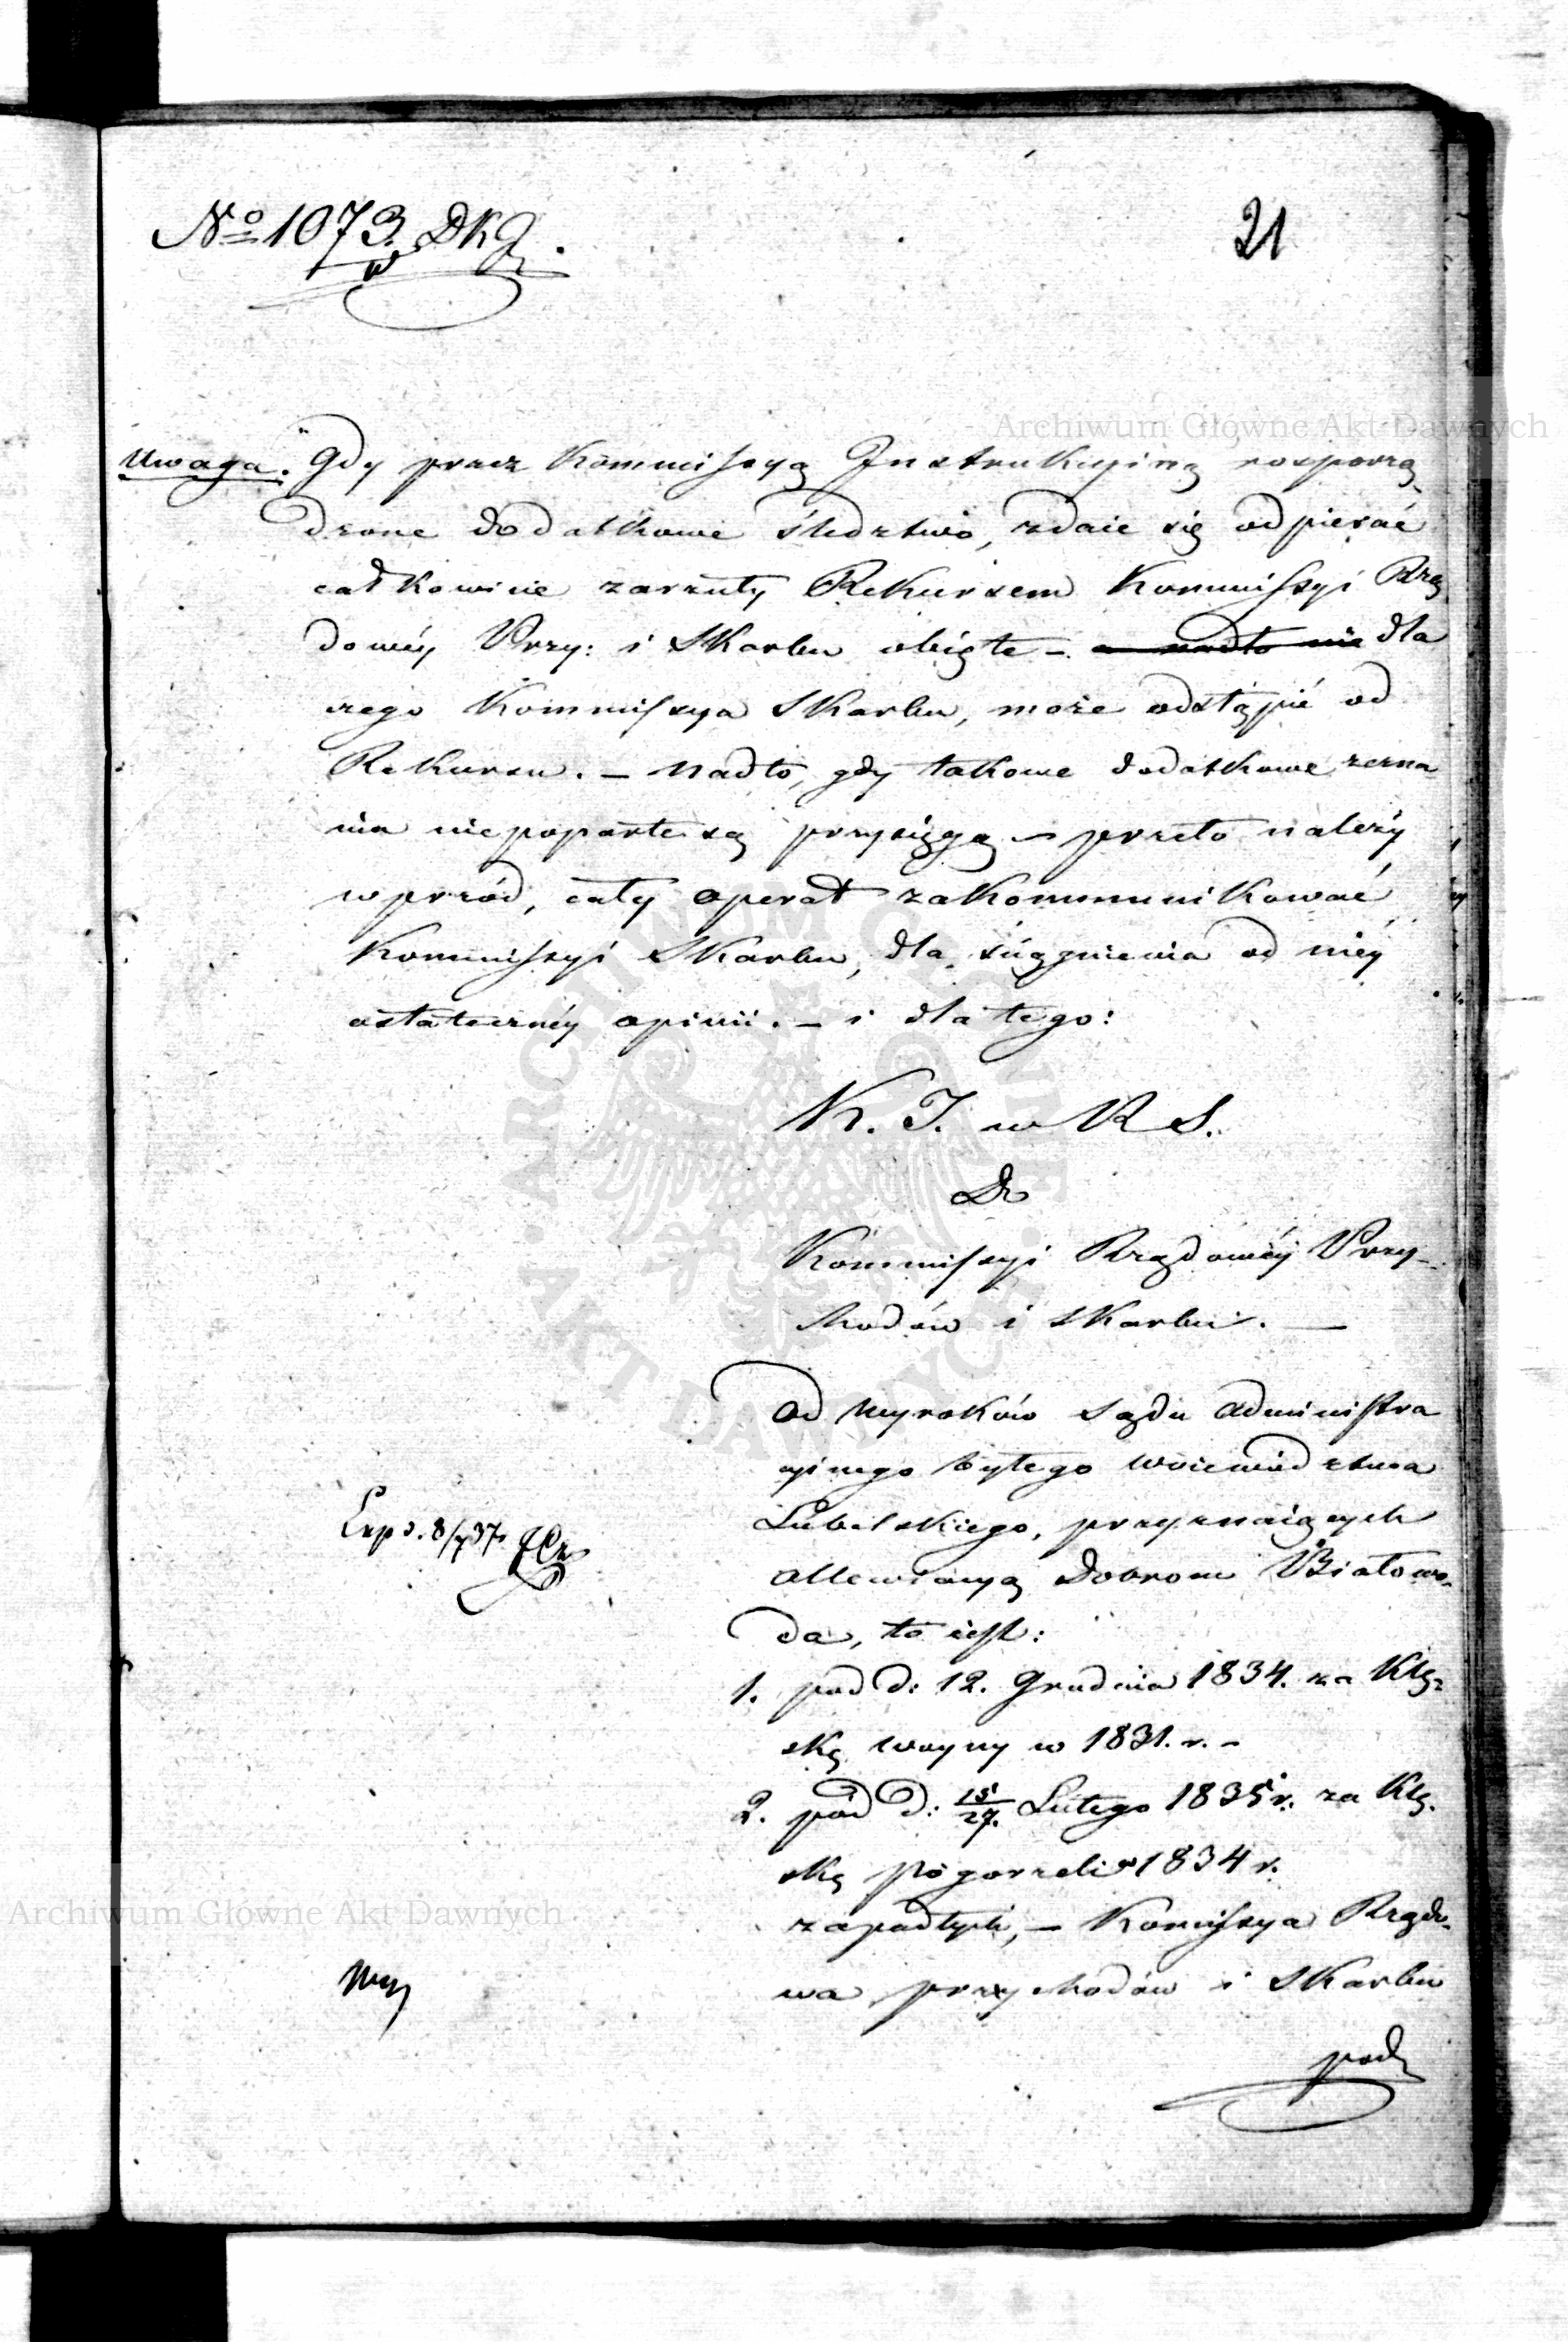 No 1073 DKJ.
21
Uwaga. Gdy przez Kommissyą Instrukcyiną rosporzą
dzone dodatkowe śledztwo, zdaie się odpierać
całkowicie zarzuty Rekursem Kommissyi Rzą
dowéy Przy: i Skarbu obięte – a nadto nie dla
czego Kommissya Skarbu, może odstąpić od
Rekursu. – Nadto, gdy takowe dodatkowe zezna
nia niepoparte są przysięgą – przeto należy
wprzód, cały operat zakommunikować
Kommissyi Skarbu, dla ściągnienia od niéy
ostatecznéy opinii. – i dla tego:
K. J. w R S.
Do
Kommissyi Rządowéy Przy-
chodów i Skarbu. –
Od Wyroków Sądu Administra
cyinego byłego Woiewództwa
Lubelskiego, przyznaiących
allewiacyą Dobrom Białowo-
da, to iest:
1. pod d: 12. Grudnia 1834. za Klę-
skę woyny w 1831. r. –
2. pod d: 15/27. Lutego 1835 r. za Klę-
skę pogorzeli w 1834 r.
zapadłych, – Komissya Rządo-
wa przychodów i Skarbu
pod
Exp d. 8/7 37
Archiwum Główne Akt Dawnych
Archiwum Główne Akt Dawnych
ARCHIWUM GŁÓWNE AKT DAWNYCH